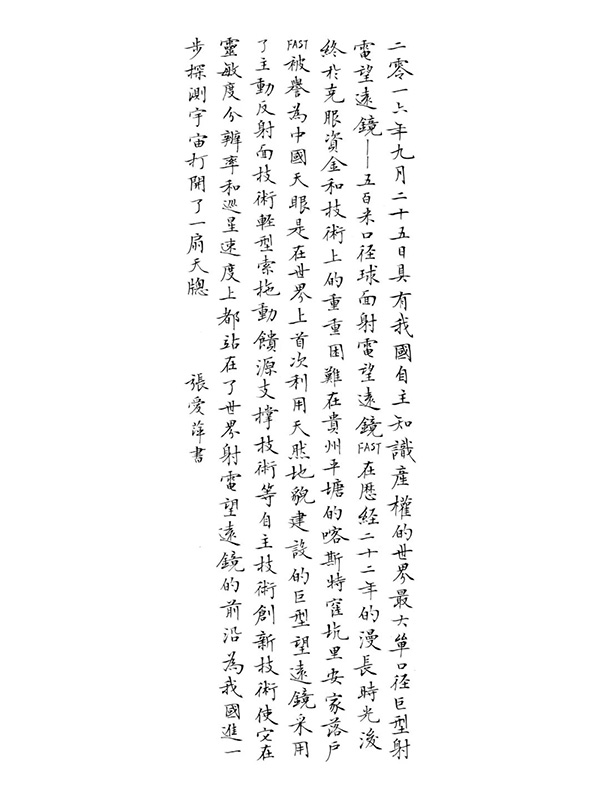 二零一六年九月二十五日具有我國自主知識產權的世界最大單口径巨型射
電望遠鏡——五百米口径球面射電望遠鏡FAST在歷経二十二年的漫長時光後
終於克服資金和技術上的重重困難在貴州平塘的喀斯特窪坑里安家落户
FAST被譽為中國天眼是在世界上首次利用天然地貌建設的巨型望遠鏡采用
了主動反射面技術輕型索拖動饋源支撑技術等自主技術創新技術使它在
靈敏度分辨率和巡星速度上都站在了世界射電望遠鏡的前沿為我國進一
步探測宇宙打開了一扇天牕
張愛萍書